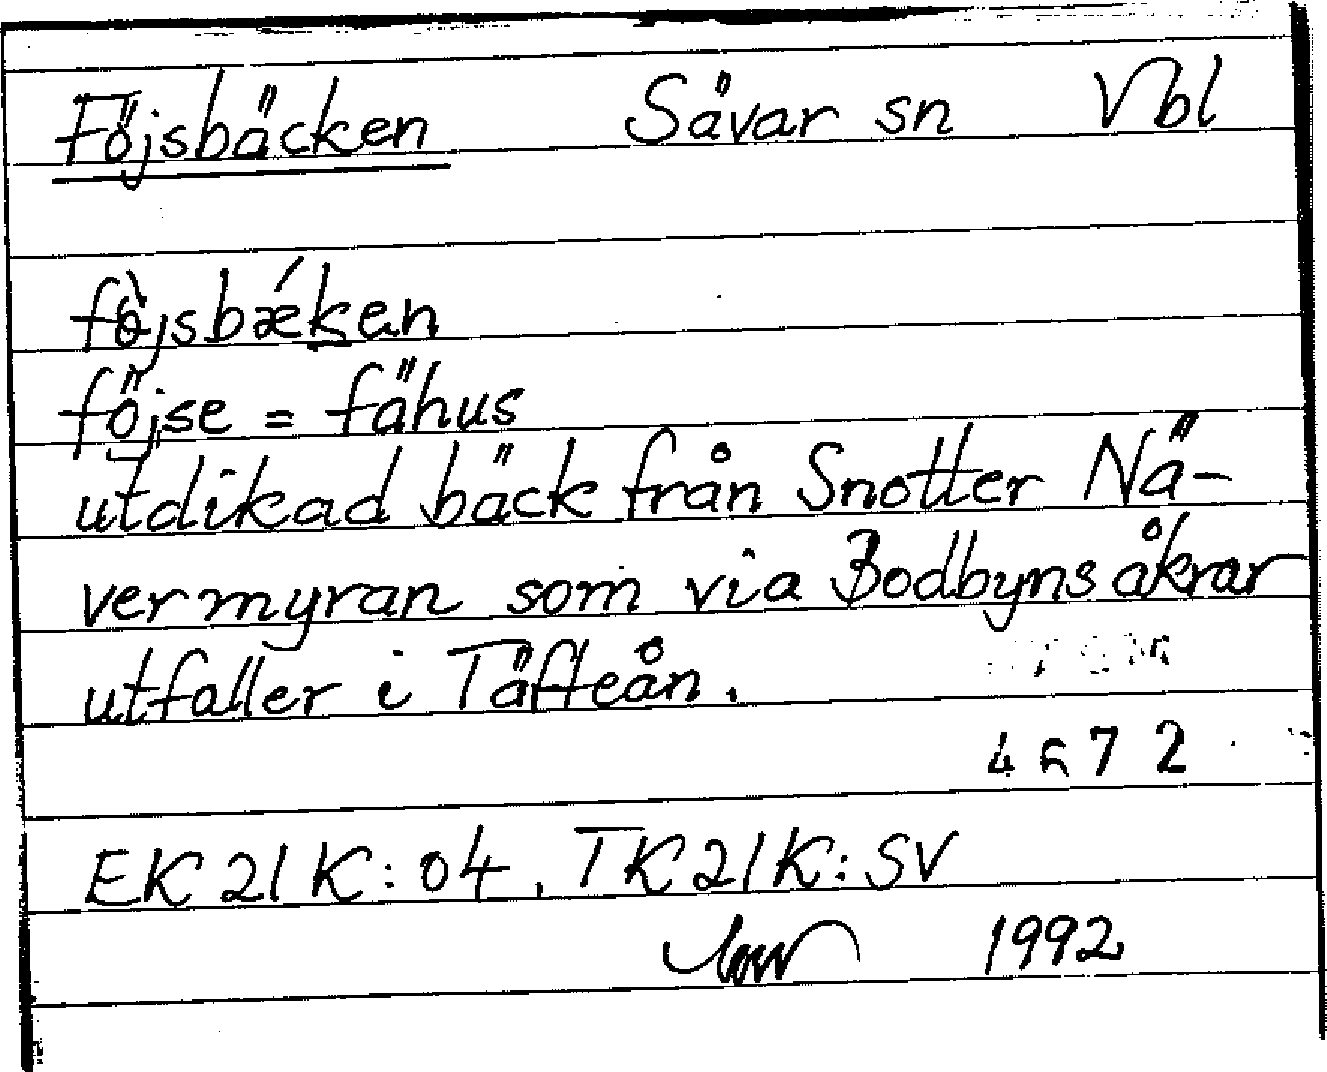 Föjsbäcken Sävar sn Vbl
fö̀jsbǽken
föjse = fähus
utdikad bäck från Snotter Nä-
vermyran som via Bodbyns åkrar
utfaller i Täfteån.
4672
EK 21 K: 04, TK 21 K: SV
1992